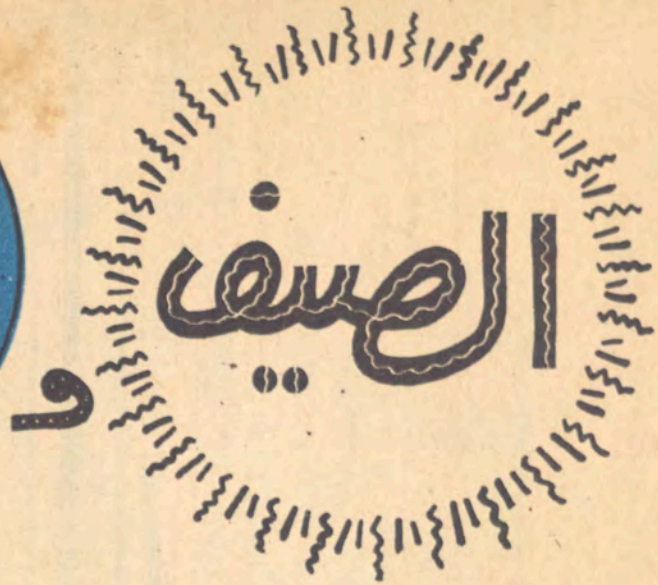 الصيف
و